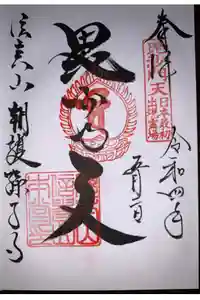 奉拝
令和四年
五月二日
毘沙門天
信貴山 朝護孫子寺